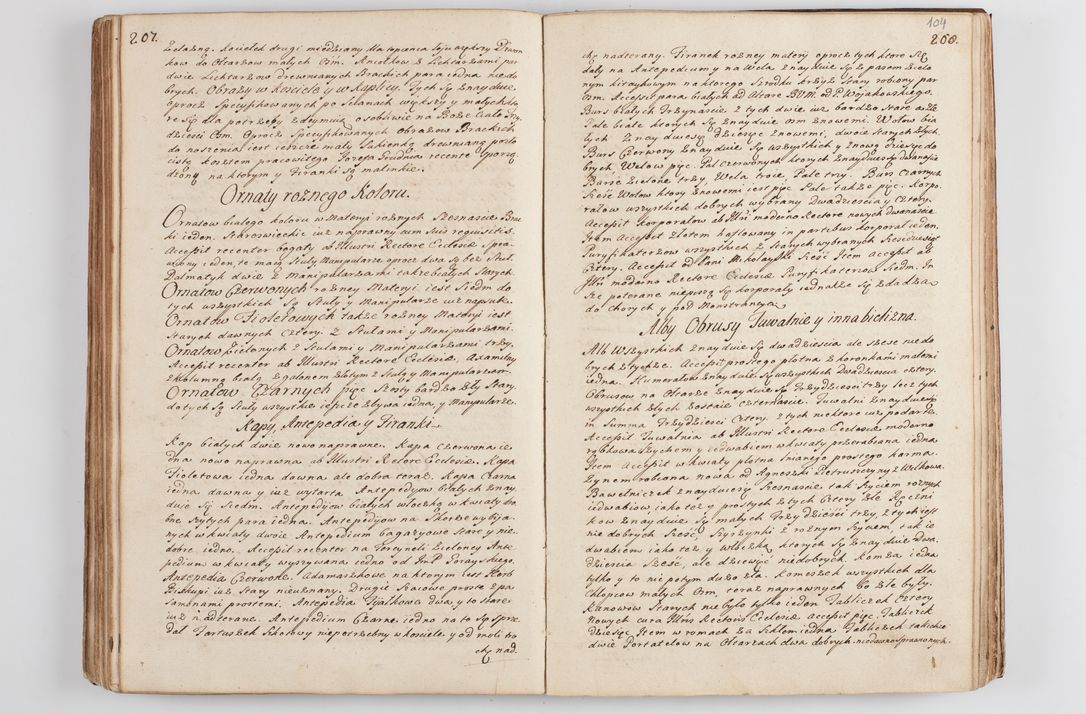 207.
żelazną. Kociełek drugi miedziany dla topienia łoju większy Dzwon
kow do Ołtarzow małych Osm. Aniołkow z Lichtarzami par
dwie Lichtarzow drewnianych Brackich para iedna niedo
brych. Obrazy w Kościele y w Kaplicy. Tych Są Znayduie
oprocz Specyfikowanych po Scianach większy y małych kto
re Się dla potrzeby zdeymuią osobliwie na Boże Ciało Trzy
dziesci Osm. Oprocz Specyfikowanych obrazow Brackich
do noszenia iest ieszcze mały Sukienką drewnianą pozło
cistą kosztem pracowitego Jozefa Prudnia recente Sporzą
dzony na ktorym y Firanki są malinkie.
Ornaty rożnego Koloru.
Ornatow białego koloru w Materyi rożnych Szesnascie Brac
ki ieden. Skroswieckie iuż naprawny cum suis requisitis.
Accessit recenter bogaty ab Illustri Rectore Ecclesiæ Spra
wiony ieden, te maią Stuły Manipularze oprocz dwa Są bez Stuł.
Dalmatyk dwie z Manipularzami także białych Starych.
Ornatow Czerwonych rożney Materyi iest Siedm do
tych wszystkich Są Stuły y Manipularze iuż napsute.
Ornatow Fioletowych także rożney Materyi iest
Starych dawnych Cztery. z Stułami y Manipularzami.
Ornatow Zielonych z Stułami y Manipularzami trzy.
Accessit recenter ab Illustri Rectore Ecclesiæ, Axamitny
z kolumną białą z galonem złotym z Stułą y Manipularzem.
Ornatow Czarnych pięc Szosty bardzo zły Stary
do tych Są Stuły wszystkie ieszcze zbywa iedna, y Manipularze.
Kapy, Antepedia y Firanki
Kap białych dwie nowo naprawne. Kapa czerwona ie
dna nowo naprawna ab Illustri Rectore Ecclesiæ. Kapa
Fioletowa iedna dawna ale dobra teraz. Kapa Czarna
iedna dawna y iuż wytarta Antepedyow białych Znay
duie Są Siedm. Antepedyow białych włoczką w kwiaty ro
bne Szytych para iedna. Antepedyow na Skorze wybija
nych w kwiaty dwoie Antepedium bagazyowe Stare y nie
dobre iedno. Accessit recenter na Tercyneli Zieloney Ante
pedium w kwiaty wyszywana iedno od JmP. Gorayskiego.
Antepedia Czerwone. Adamaszkowe na ktorym iest Herb
Biskupi iuż Stary nieuznany. Drugie Kraiowe proste z pa
samonami prostemi. Antepedia Fijałkowa dwa, y to Stare
iuż nadterane. Antepedium Czarne iedno na to Są Sprze
dał Fartuszek Szkołowy niepotrzebny w kościele y od moli tro
chę nad.

104
208.
chę nadterany. Firanek rożney matery oprocz tych ktore Się
dały na Antepediumy na Wela znayduie Się z pasem Ziela
nym kitaykowym na ktorego Szrodku krzyż Stary robiony par
Osm. Accessit para białych ad Altare B.V.M. od P. Wojakowskiego.
Burs białych Trzynascie z tych dwie iuż bardzo Stare a złe
Pale białe ktorych Są Znayduie osm znowemi. Welow bia
łych Znayduiesię dziesięc znowemi, dwoie Starych złych.
Burs Czerwony Znayduie Są wszystkich y znową dziesięc do
brych, Welow pięc. Pal Czerwonych ktorych Znayduiesię dwanascie
Bursę Zielone trzy, Wela troie, Pale trzy. Burs Czarnych
Sześc Welow ktory znowemi iest pięc Pale także pięc. Korpo
rałow wszystkich dobrych wybrany Dwadziescia y Cztery.
Accessit Korporałow ab Illri moderno Rectore nowych dwanascie.
Item Accessit złotem haftowany in partibus korporał ieden.
Puryfikaterzow wszystkich z Starych wybranych Szescdziesiąt
Cztery. Accessit od Pani Mikołayski Sześc Item accessit ab
Illri moderno Rectore Ecclesiæ Puryfikaterzow Siedm. In
Sze poterane nieproszą Są korporały iednakże Są zdadzą
do chorych y pod Monstrancyą
Alby Obrusy Tuwalnie y inna bielizna.
Alb wszystkich Znayduie Są dwadziescia ale Szesc niedo
brych z tychże. Accessit prostego płotna z koronkami małemi
iedna. Humerałow Znayduie Są wszystkich Dwadziescia cztery.
Obrusow na Ołtarze Znayduie Są Trzydziesci trzy lecz tych
wszystkich złych Zostaie czternascie. Tuwalni Znayduiesię
in Summa Trzydziesci Cztery. z tych niektore iuż podarte.
Accessit Tuwalnia ab Illustri Rectore Ecclesiæ moderno
rąbkowa Szychem y iedwabiem w kwiaty przerabiana iedna
Item Accessit w kwiaty płotna lnianego prostego karma
Zynem robiona nowa od Agneszki Pietruszczyny z Welkowa.
Bawełniczek Znayduiesię Szesnascie tak Szyciem rożnych
iedwabiow, iako też y prostych z tych Cztery złe Ręczni
kow Znayduie Są małych Trzydziesci trzy, z tych iest
nie dobrych Sześc, Szyrzynki z rożnym Szywem, tak ie
dwabiem iako też y włoczką, ktorych Są Znayduie dwa
dziescia Szesc, ale dziewięc niedobrych, Komża iedna
tylko y to nie potym dużo zła. Komeszek wszystkich dla
Chłopcow małych Osm, teraz naprawnych, bo złe były.
Kanonow Starych nie było tylko ieden Tabliczek Cztery
Nowych cura Illris Rectoris Ecclesiæ accessit pięc. Tabliczek
dziesięc Item w ramach za Szkłem iedna Tabliczek także
dwie Portatelow na Ołtarzach dwa dobrych. niedawno sprawionych.